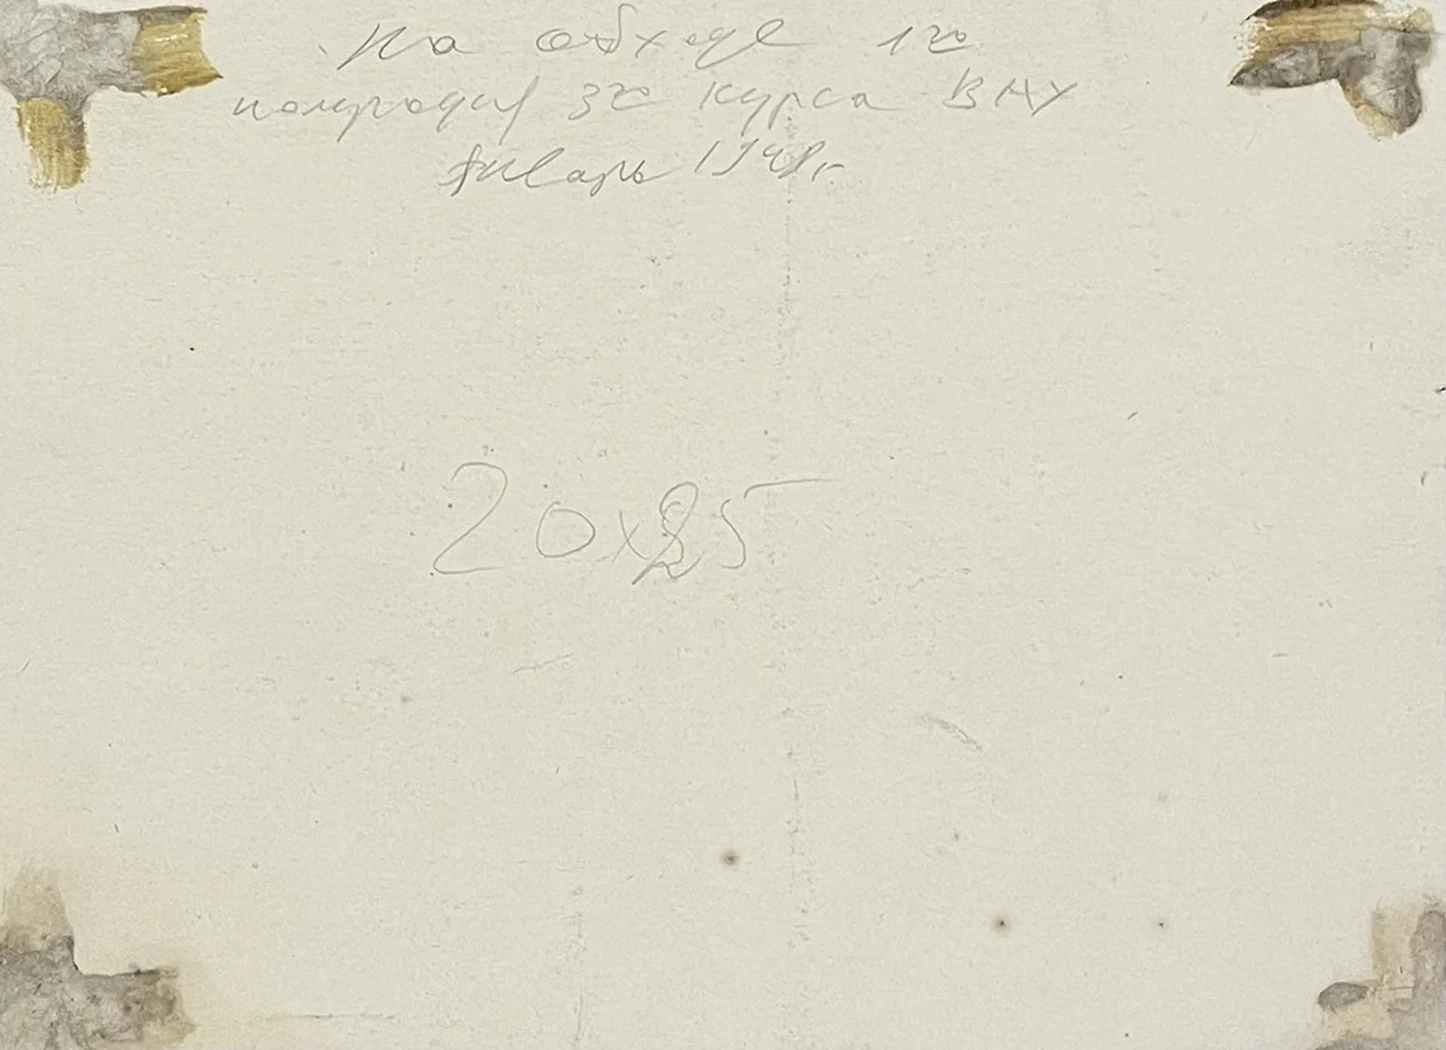 На обходе 1го
полугодия 3го курса ВАУ
Январь 1948г
20x25